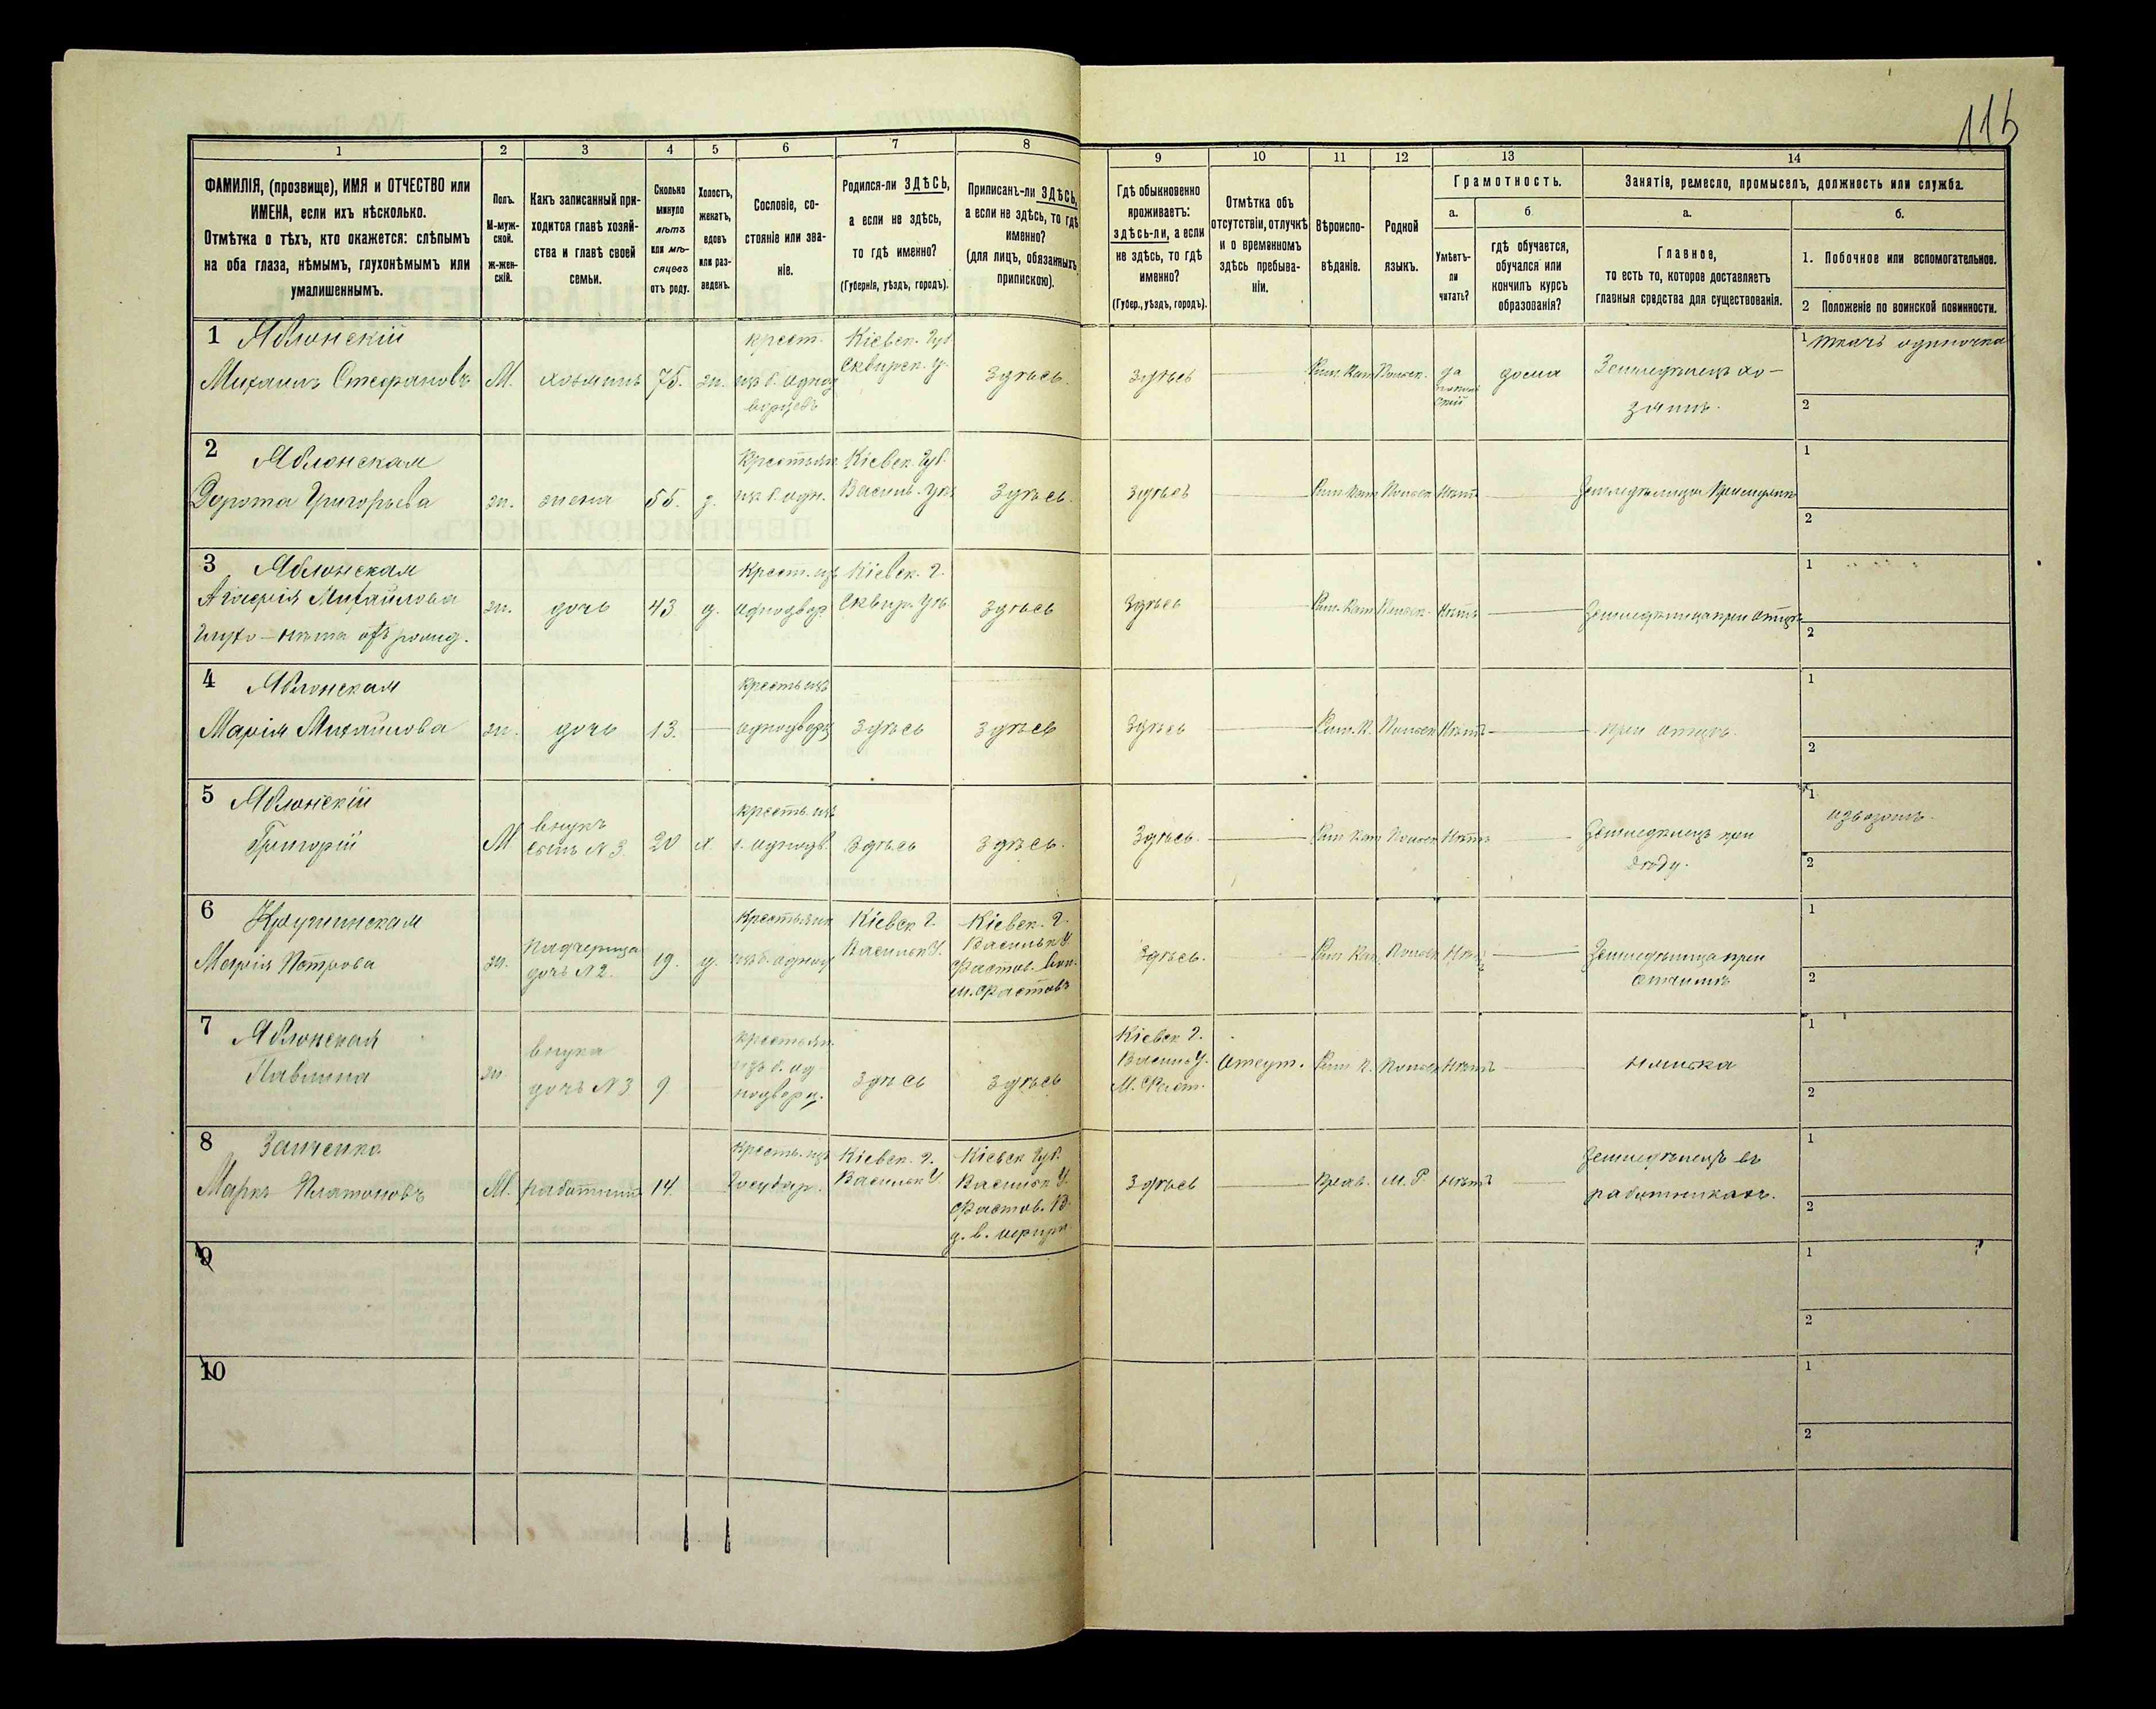 116
1
2
3
4
5
6
7
8
9
10
11
12
13
14
ФАМИЛІЯ, (прозвище), ИМЯ и ОТЧЕСТВО или
ИМЕНА, если ихъ нѣсколько.
Отмѣтка о тѣхъ, кто окажется: слѣпымъ
на оба глаза, нѣмымъ, глухонѣмымъ или
умалишеннымъ.
Полъ.
М-муж-
ской.
Ж-жен-
скій.
Какъ записанный при-
ходится главѣ хозяй-
ства и главѣ своей
семьи.
Сколько
минуло
лѣтъ
или мѣ-
сяцевъ
отъ роду.
Холостъ,
женатъ,
вдовъ
или раз-
веденъ.
Сословіе, со-
стояніе или зва-
ніе.
Родился-ли ЗДѢСЬ,
а если не здѣсь,
то гдѣ именно?
(Губернія, уѣздъ, городъ).
Приписанъ-ли ЗДѢСЬ,
а если не здѣсь, то гдѣ
именно?
(для лицъ, обязанныхъ
припискою).
Гдѣ обыкновенно
проживаетъ:
здѣсь-ли, а если
не здѣсь, то гдѣ
именно?
(Губер., уѣздъ, городъ).
Отмѣтка объ
отсутствіи, отлучкѣ
и о временномъ
здѣсь пребыва-
ніи.
Вѣроиспо-
вѣданіе.
Родной
языкъ.
Грамотность.
а.
Умѣетъ-
ли
читать?
б.
гдѣ обучается,
обучался или
кончилъ курсъ
образованія?
Занятіе, ремесло, промыселъ, должность или служба.
а.
Главное,
то есть то, которое доставляетъ
главныя средства для существованія.
б.
1. Побочное или вспомогательное.
2 Положеніе по воинской повинности.
1 Яблонскій
Михаилъ Стефановъ
М.
хозяинъ
75.
ж.
крест.
из б. однод
ворцевъ
Кіевск. Губ
Сквирск. у.
Здѣсь.
Здѣсь
Рим. Кат
Польск.
да
дома
Земледѣлецъ хо-
зяинъ.
1 ткачъ одиночка
2
2 Яблонская
Дорота Григорьева
ж.
жена
55.
з.
Крестьян
из б. одн.
Кіевск. Губ.
Василь. Уѣз
Здѣсь.
Здѣсь
Рим. Кат
Польск
Нѣтъ
1
2
3 Яблонская
Михайлова
Глухо-нѣма отъ рожд.
ж.
дочь
43
д.
Крест. изъ
однодвор.
Кіевск. г.
Сквир. Уѣ.
Здѣсь
Здѣсь
Рим. Кат
Польск.
Нѣтъ
Земледѣлица при отцѣ
1
2
4 Яблонская
Марія Михайлова
ж.
дочь
13.
Кресть изъ
однодворц
Здѣсь
Здѣсь
Здѣсь
Рим. К.
Польск
Нѣтъ
при отцѣ.
1
2
5 Яблонскій
Григорій
М
внукъ
сынъ N 3.
20
х.
кресть. изъ
б. однодв.
Здѣсь
Здѣсь.
Здѣсь.
Рим Кат
Польск
Нѣтъ
Земледѣлецъ при
дѣду.
1
извозомъ.
2
6
Марія Петрова
ж.
Падчерица
дочь N 2.
19.
д.
Крестьянк
из б. однод
Кіевск г.
Васильк У.
Кіевск. г.
Васильк У
Фастов. Вол.
м. Фастовъ
Здѣсь.
Рим Кат
Польск
Нѣтъ
Земледѣлица при
отчимѣ
1
2
7 Яблонская
Павлина
ж
внука
дочь N 3
9
крестьян.
изъ б. од
нодворц.
Здѣсь
Здѣсь
Кіевск г.
Василь У.
М. Фаст.
Отсут.
Рим К.
Польск
Нѣтъ
нянька
1
2
8
Маркъ Платоновъ
М.
работник
14.
Кресть. изъ
Государ.
Кіевск. г.
Васильк У.
Кіевск Губ.
Васильк У.
Фастов. В.
Здѣсь
Прав.
М. Р
Нѣтъ
Земледѣлецъ въ
работникахъ.
1
2
9
1
2
10
1
2